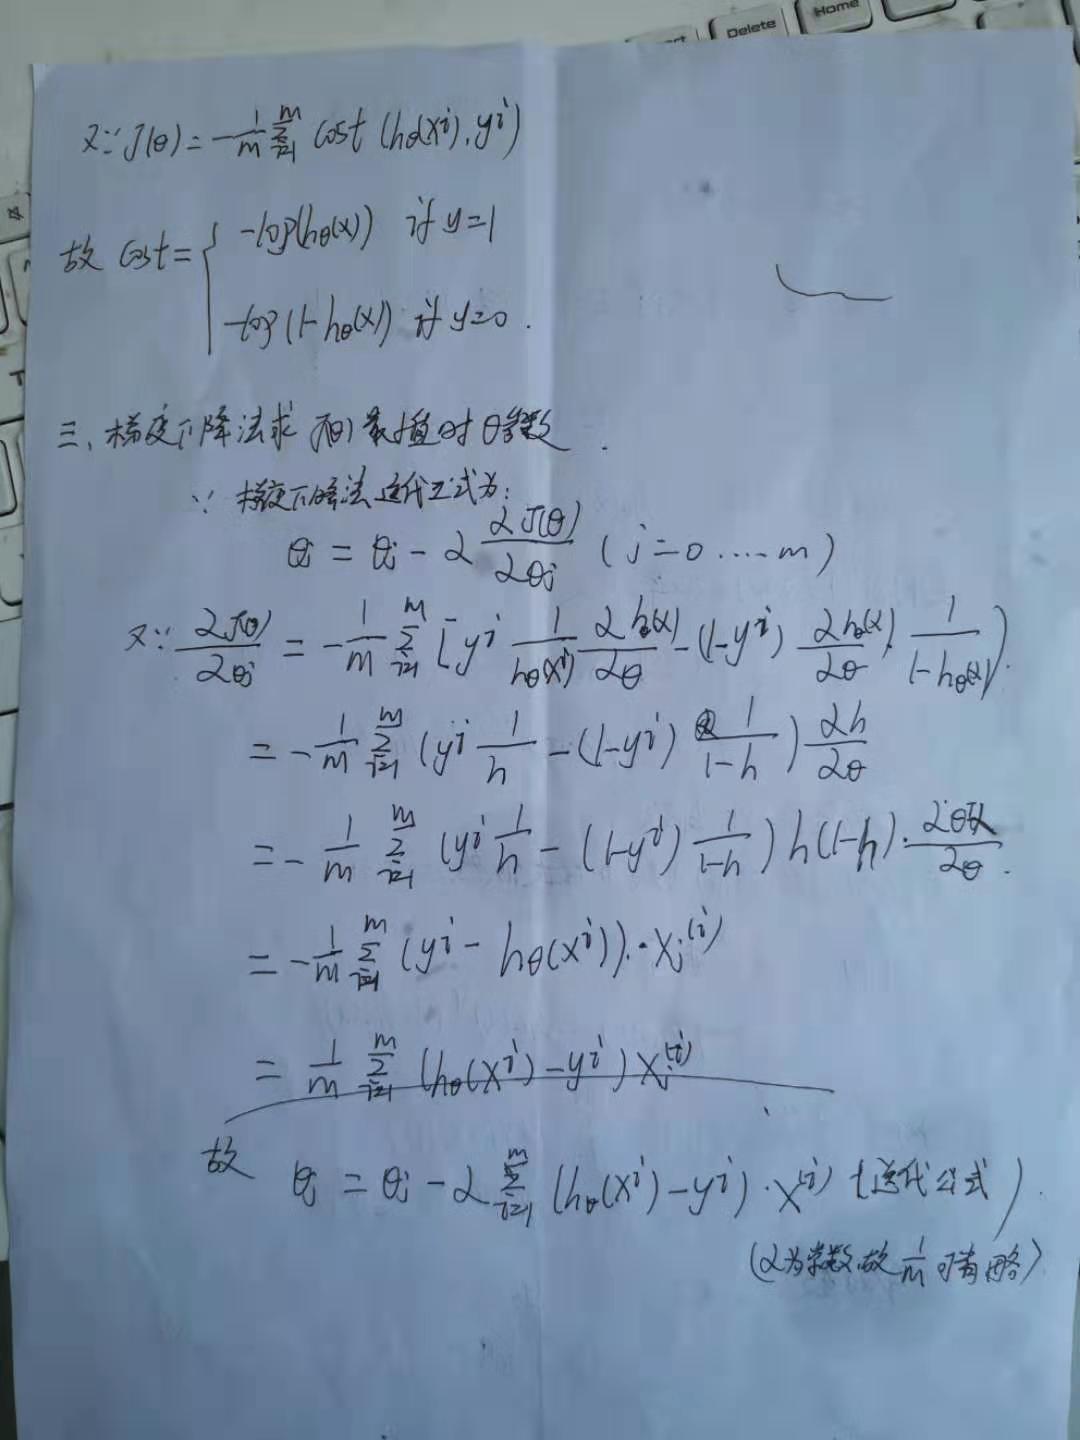 Delete
Home
又∵ J(θ) = -1/m Σ(i=1→m) cost (hθ(xⁱ), yⁱ)
故 Cost = { -log(hθ(x)) if y=1
-log(1-hθ(x)) if y=0.
三、梯度下降法求 J(θ) 最小值时 θ参数
∵ 梯度下降法迭代公式为:
θj = θj - α ∂J(θ)/∂θj (j=0....m)
又∵ ∂J(θ)/∂θj = -1/m Σ(i=1→m) [yⁱ 1/hθ(xⁱ) ∂hθ(x)/∂θ - (1-yⁱ) ∂hθ(x)/∂θ · 1/(1-hθ(x))].
= -1/m Σ(i=1→m) (yⁱ 1/h - (1-yⁱ) 1/(1-h)) ∂h/∂θ
= -1/m Σ(i=1→m) (yⁱ 1/h - (1-yⁱ) 1/(1-h)) h(1-h) · ∂θᵀx/∂θ.
= -1/m Σ(i=1→m) (yⁱ - hθ(xⁱ)) · xj⁽ⁱ⁾
= 1/m Σ(i=1→m) (hθ(xⁱ) - yⁱ) xj⁽ⁱ⁾
故 θj = θj - α Σ(i=1→m) (hθ(xⁱ) - yⁱ) · x⁽ⁱ⁾ (迭代公式).
(α为常数,故 1/m 可省略)